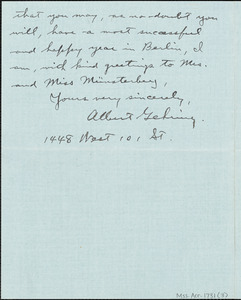 that you may, as no doubt you
will, have a most successful
and happy year in Berlin, I
am, with kind greetings to Mrs.
and Miss Münsterberg,
Yours very sincerely,
Albert Gehring,
1448 West 101 St.
Mss. Acc. 1731 (3)